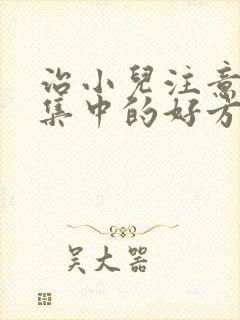 治小兒注意
集中的好方
吴大器